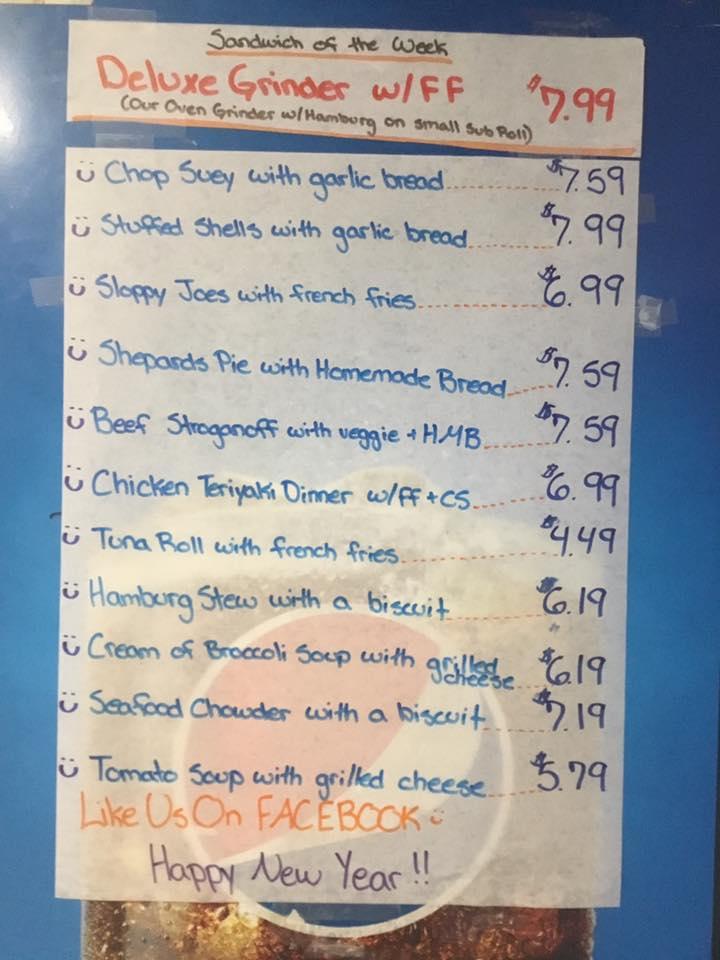 Sandwich of the Week
Deluxe Grinder w/FF $7.99
(Our Oven Grinder w/Hamburg on small Sub Roll)
Chop Suey with garlic bread $7.59
Stuffed Shells with garlic bread $7.99
Sloppy Joes with french fries $6.99
Shepards Pie with Homemade Bread $7.59
Beef Stroganoff with veggie + HMB $7.59
Chicken Teriyaki Dinner w/ff + CS $6.99
Tuna Roll with french fries $4.49
Hamburg Stew with a biscuit $6.19
Cream of Broccoli Soup with grilled cheese $6.19
Seafood Chowder with a biscuit $7.19
Tomato Soup with grilled cheese $5.79
Like Us On FACEBOOK
Happy New Year!!